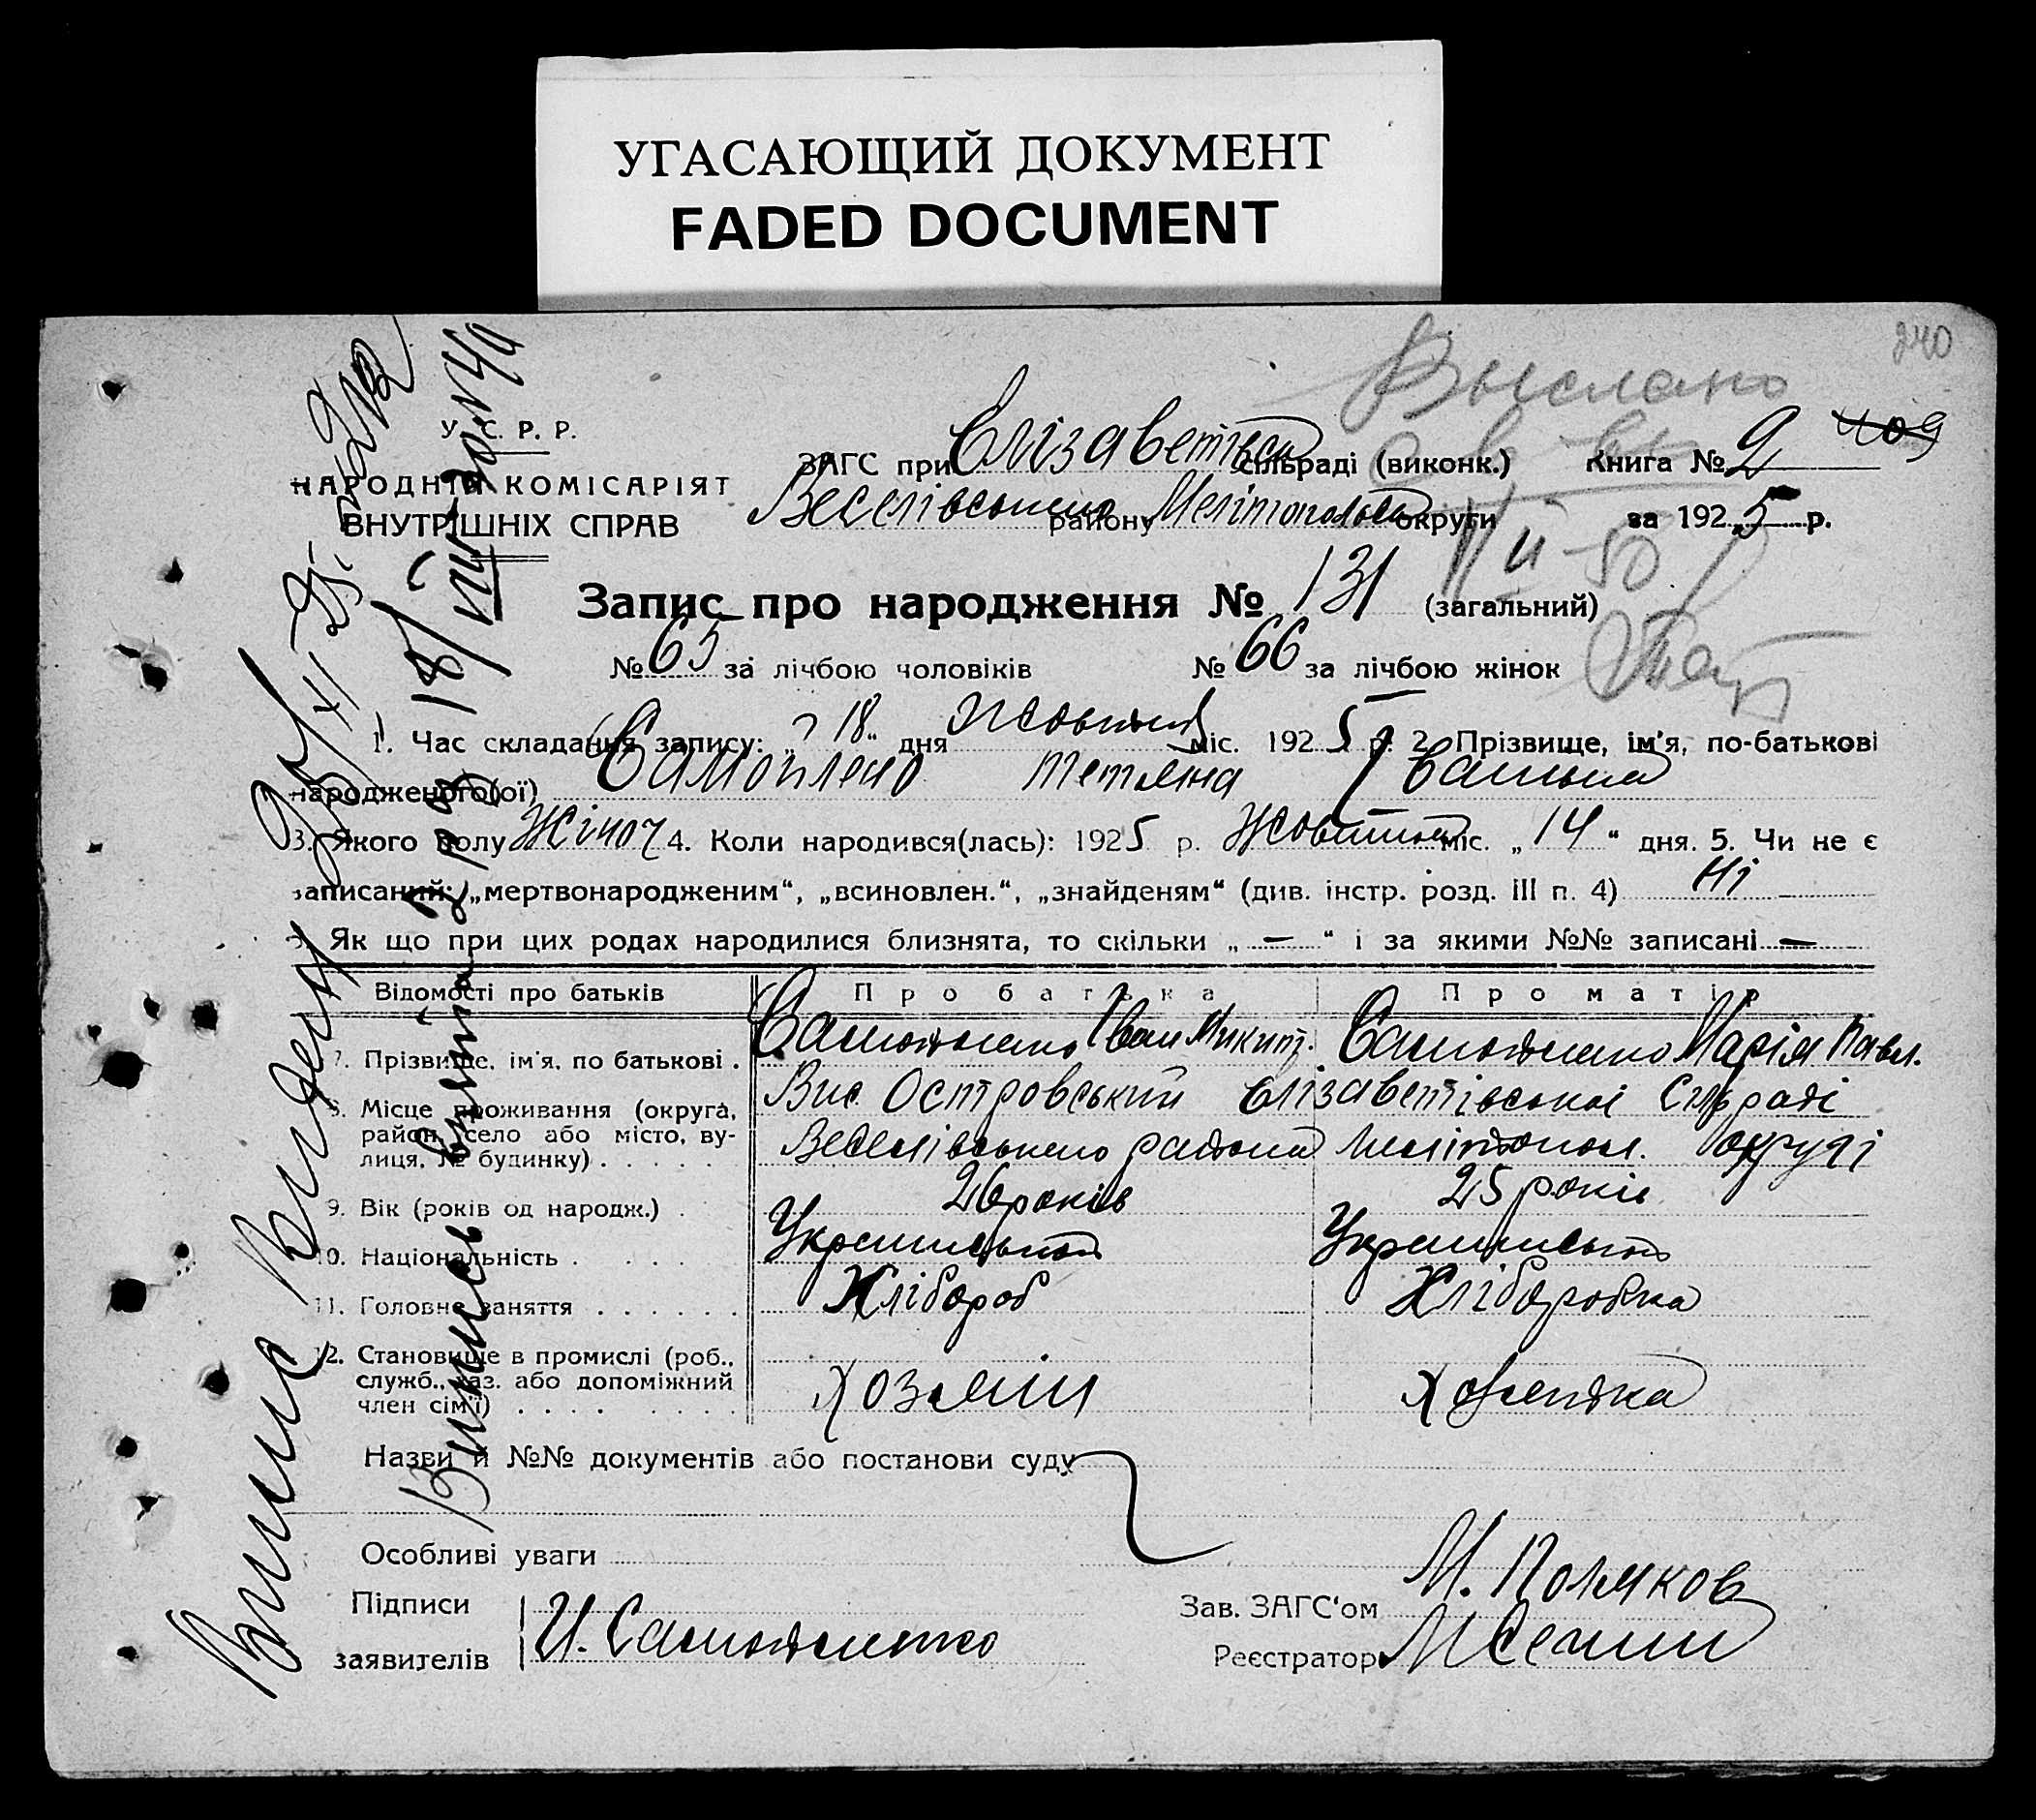 УГАСАЮЩИЙ ДОКУМЕНТ
FADED DOCUMENT
240
Выслано
У. С. Р. Р.
НАРОДНІЙ КОМІСАРІЯТ
ВНУТРІШНІХ СПРАВ
ЗАГС при Єлізаветівськ сільраді (виконк.) Книга № 2 409
Веселівського району Мелітопольск округи за 1925 р.
11/II-50
Запис про народження № 131 (загальний)
№ 65 за лічбою чоловіків № 66 за лічбою жінок
1. Час складання запису: „18“ дня Жовтня міс. 1925 р. 2. Прізвище, ім'я, по-батькові
народженого(ої) Тетяна Іванівна
3. Якого полу Жіноч 4. Коли народився(лась): 1925 р. Жовтня міс. „14“ дня. 5. Чи не є
записаний: „мертвонародженим“, „всиновлен.“, „знайденям“ (див. інстр. розд. III п. 4) Ні
6. Як що при цих родах народилися близнята, то скільки „ — “ і за якими №№ записані —
Відомості про батьків Про батька Про матір
7. Прізвище, ім'я, по батькові . Іван Микит. Марія Павл.
8. Місце проживання (округа, район, село або місто, ву-лиця, № будинку) . . . . . Вис. Островський Єлізаветівської Сільраді
Веселівського района Мелітопол. округі
9. Вік (років од народж.) . 26 років 25 років
10. Національність . . . . Українськой Українська
11. Головне заняття . . . . . . Хлібороб Хліборобка
12. Становище в промислі (роб., служб., хаз. або допоміжний член сім'ї) . . . . . . . . Хозяїн Хозяйка
Назви й №№ документів або постанови суду
Особливі уваги
Підписи
заявителів
Зав. ЗАГС‘ом М. Поляков
Реєстратор